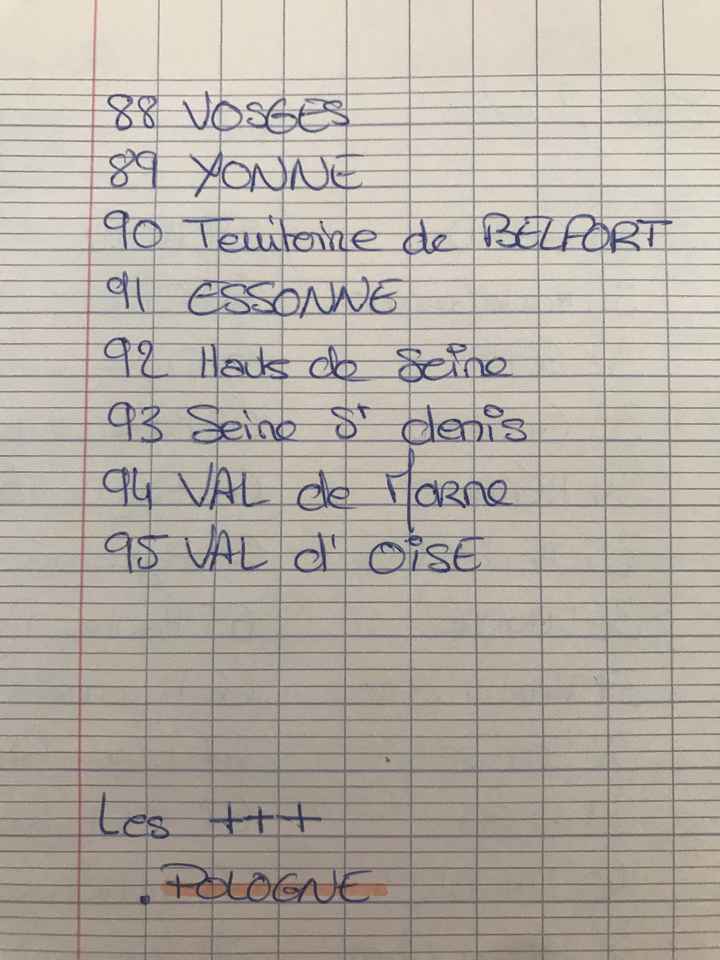 88 VOSGES
89 YONNE
90 Territoire de BELFORT
91 ESSONNE
92 Hauts de Seine
93 Seine St denis
94 VAL de Marne
95 VAL d' OiSE
Les +++
. POLOGNE